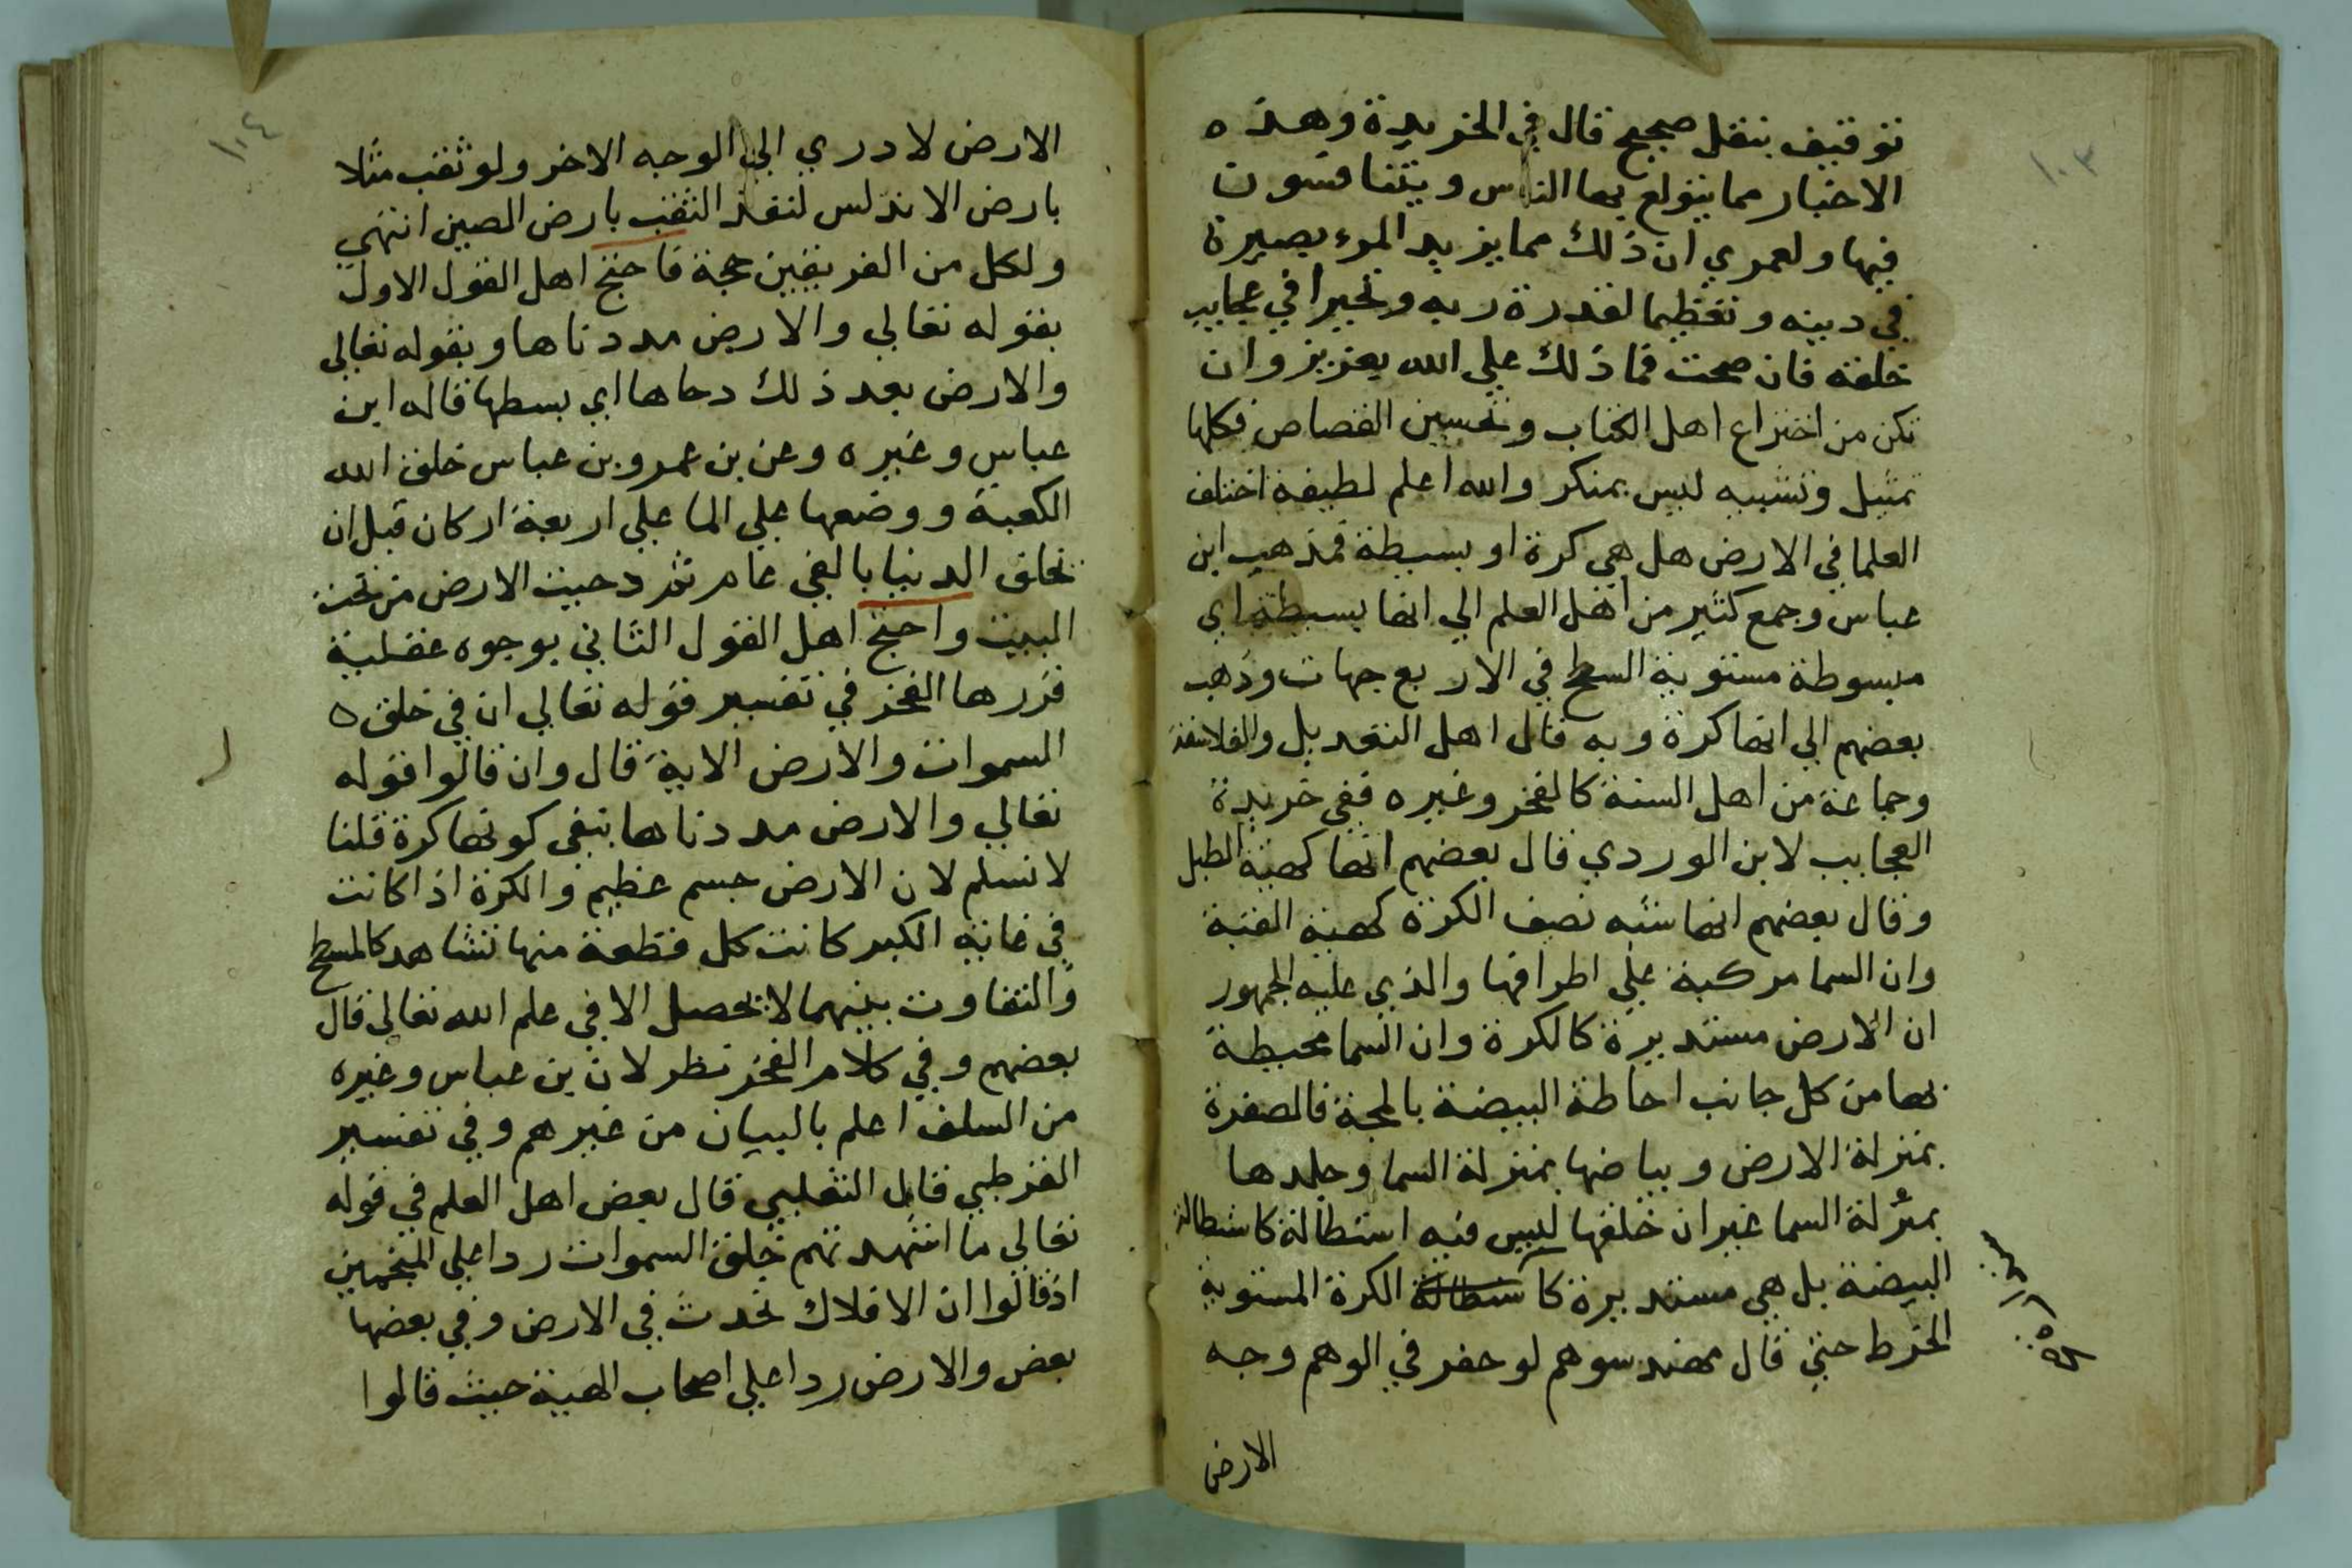 ١٠٣
توقيف بنقل صحيح قال في الخريدة وهذه
الاخبار مما يتولع بها الناس ويتنافسون
فيها ولعمري ان ذلك مما يزيد المرء بصيرة
في دينه وتعظيما لقدرة ربه وتحيرا في عجايب
خلقه فان صحت فما ذلك علي الله بعزيز وان
تكن من اختراع اهل الكتاب وتحسين القصاص فكلها
تمثيل وتشبيه لليس بمنكر والله اعلم لطيفة اختلف
العلما في الارض هل هي كرة او بسيطة فمذهب ابن
عباس وجمع كثير من اهل العلم الي انها بسيطة اي
مبسوطة مستوية السطح في الاربع جهات وذهب
بعضهم الي انها كرة وبه قال اهل التعديل والفلاسفة
وجماعة من اهل السنة كالفخر وغيره ففي خريدة
العجايب لابن الوردي قال بعضهم انها كهية الطبل
وقال بعضهم انها شبه نصف الكرة كهية القبة
وان السما مركبة علي اطرافها والذي عليه الجمهور
ان الارض مستديرة كالكرة وان السما محيطة
بها من كل جانب احاطة البيضة بالمحة فالصفرة
بمنزلة الارض وبياضها بمنزلة السما وجلدها
بمنزلة السما غير ان خلقها ليس فيه استطالة كاستطالة
البيضة بل هي مستديرة كاستطالة الكرة المستوية
الخرط حتي قال مهندسوهم لو حفر في الوهم وجه
الارض
١٠٤
الارض لادري الي الوجه الاخر ولو ثقب مثلا
بارض الاندلس لنفذ الثقب بارض الصين انتهي
ولكل من الفريقين حجة فاحتج اهل القول الاول
بقوله تعالي والارض مددناها وبقوله تعالي
والارض بعد ذلك دحاها اي بسطها قاله ابن
عباس وغيره وعن بن عمرو بن عباس خلق الله
الكعبة ووضعها علي الما علي اربعة اركان قبل ان
تخلق الدنيا بالفي عام ثم دحيت الارض من تحت
البيت واحتج اهل القول الثاني بوجوه عقلية
قررها الفخر في تفسير قوله تعالي ان في خلق
السموات والارض الاية قال وان قالوا قوله
تعالي والارض مددناها ينفي كونها كرة قلنا
لا نسلم لان الارض جسم عظيم والكرة اذا كانت
في غاية الكبر كانت كل قطعة منها تشاهد كالمسطح
والتفاوت بينهما لا يحصل الا في علم الله تعالي قال
بعضهم وفي كلام الفخر نظر لان بن عباس وغيره
من السلف اعلم بالبيان من غيرهم وفي تفسير
القرطبي قال الثعلبي قال بعض اهل العلم في قوله
تعالي ما اشهدتهم خلق السموات ردا علي المنجمين
اذ قالوا ان الافلاك تحدث في الارض وفي بعضها
بعض والارض ردا علي اصحاب الهية حيث قالوا